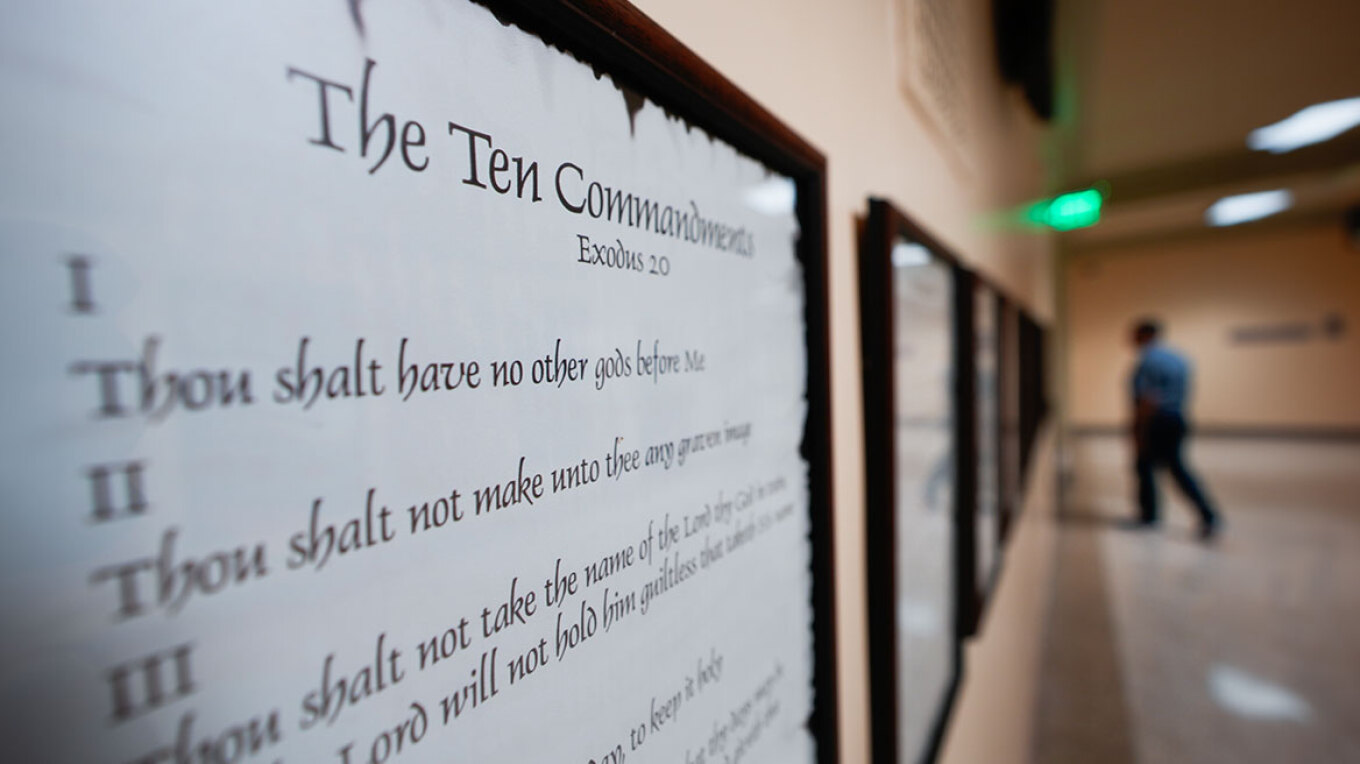 The Ten Commandments
Exodus 20
I
Thou shalt have no other gods before Me
II
Thou shalt not make unto thee any graven image
III
Thou shalt not take the name of the Lord thy God in vain
Lord will not hold him guiltless that taketh His name
to keep it holy